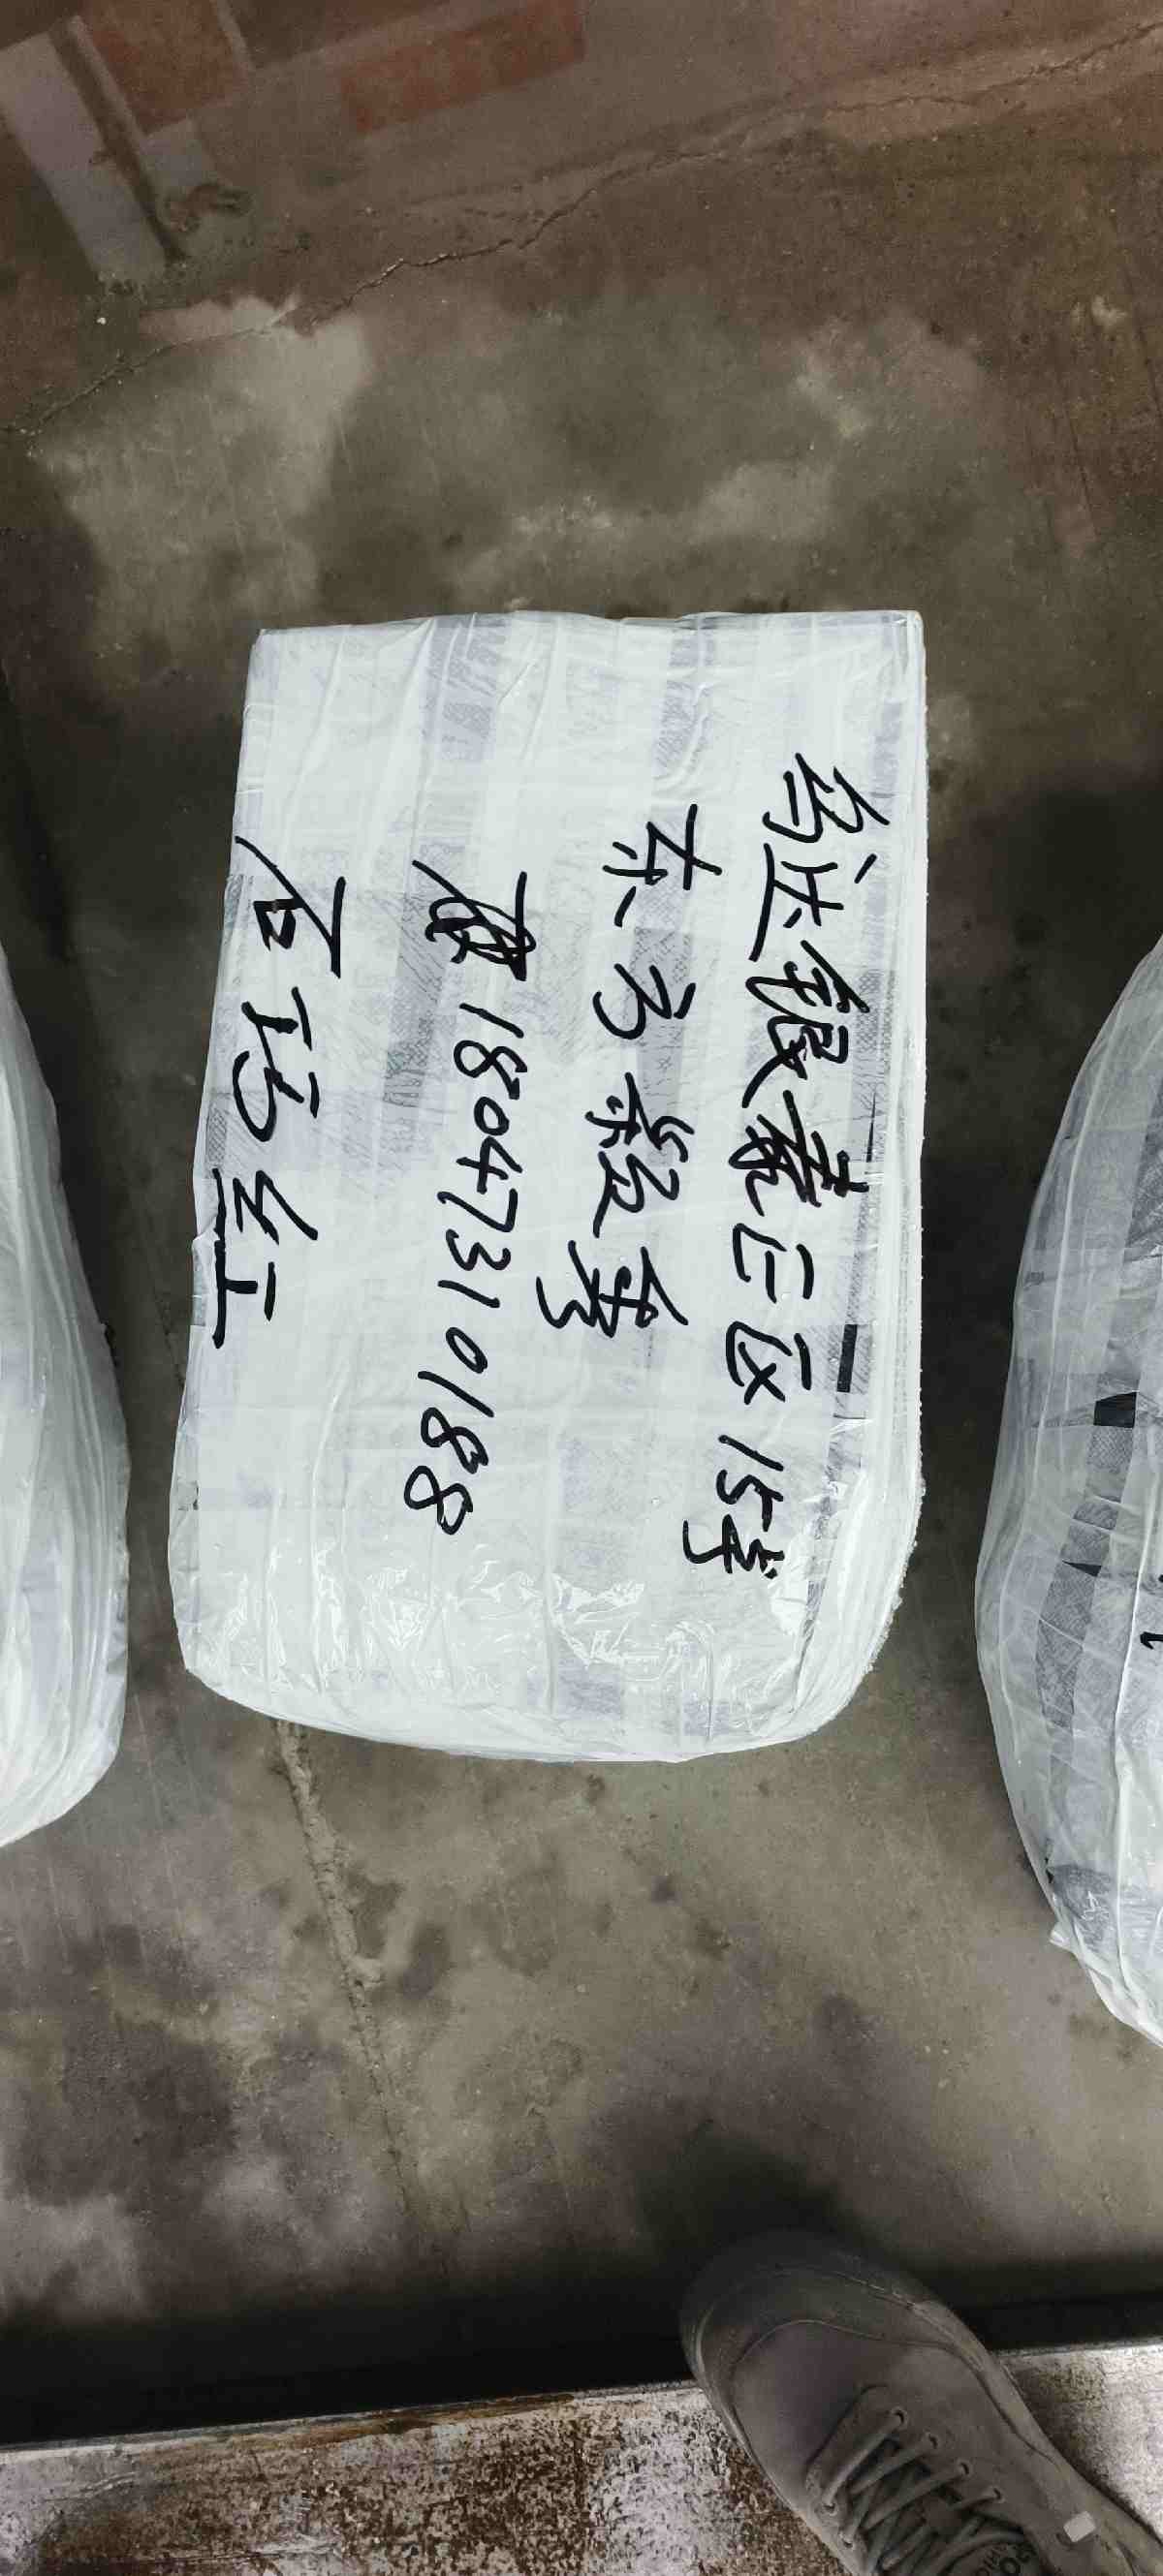 乌达银嘉二区15号
东方紫缘秀
18047310188
石巧红